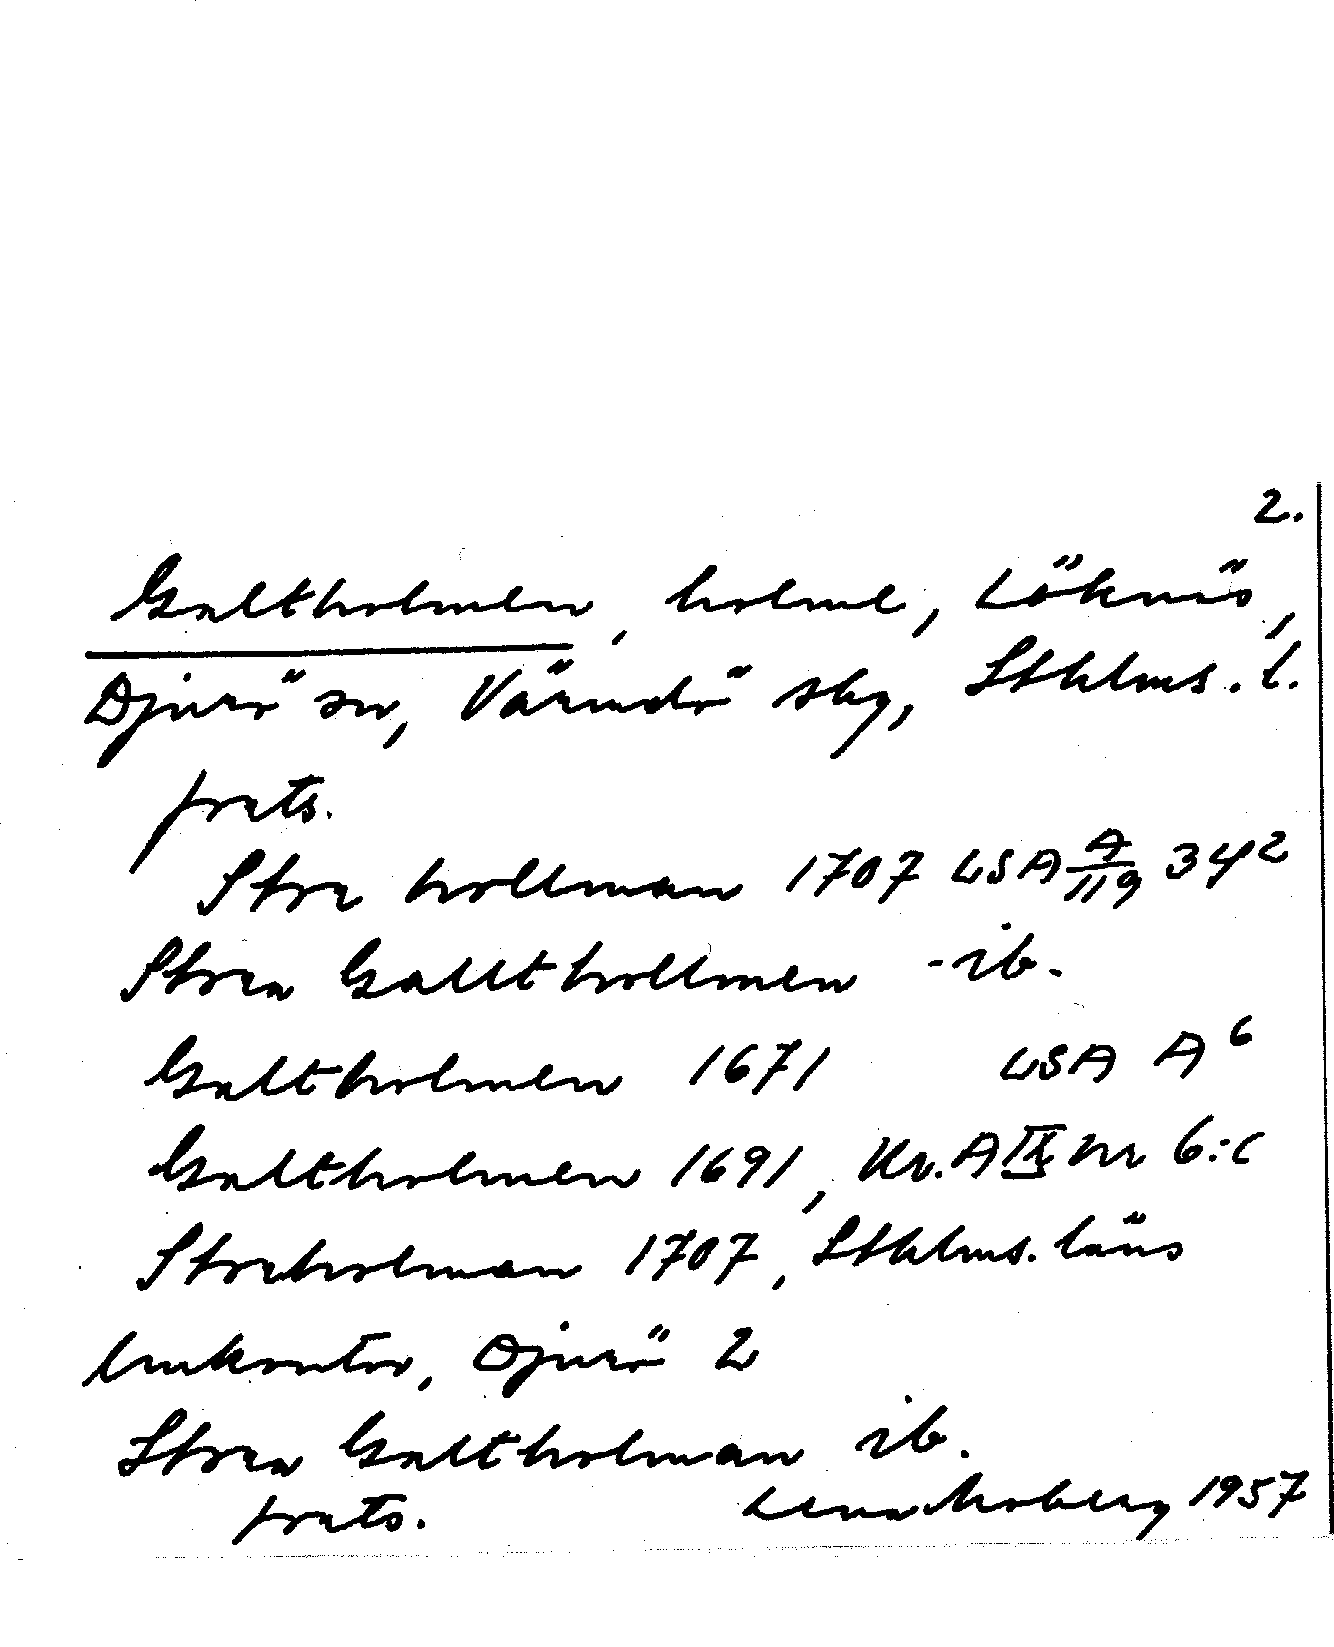 2.
Galtholmen, holme, Löknäs,
Djurö sn, Värmdö skg, Sthlms. l.
forts.
Store hollman 1707 LSA A/119 34²
Stora Galltholmen - ib.
Galtholmen 1671 LSA A⁶
Galtholmen 1691, Kr. A IX nr 6:c
Storeholman 1707, Sthlms. läns
lmkontor, Djurö 2
Stora Galtholman ib.
forts. Lena Moberg 1957